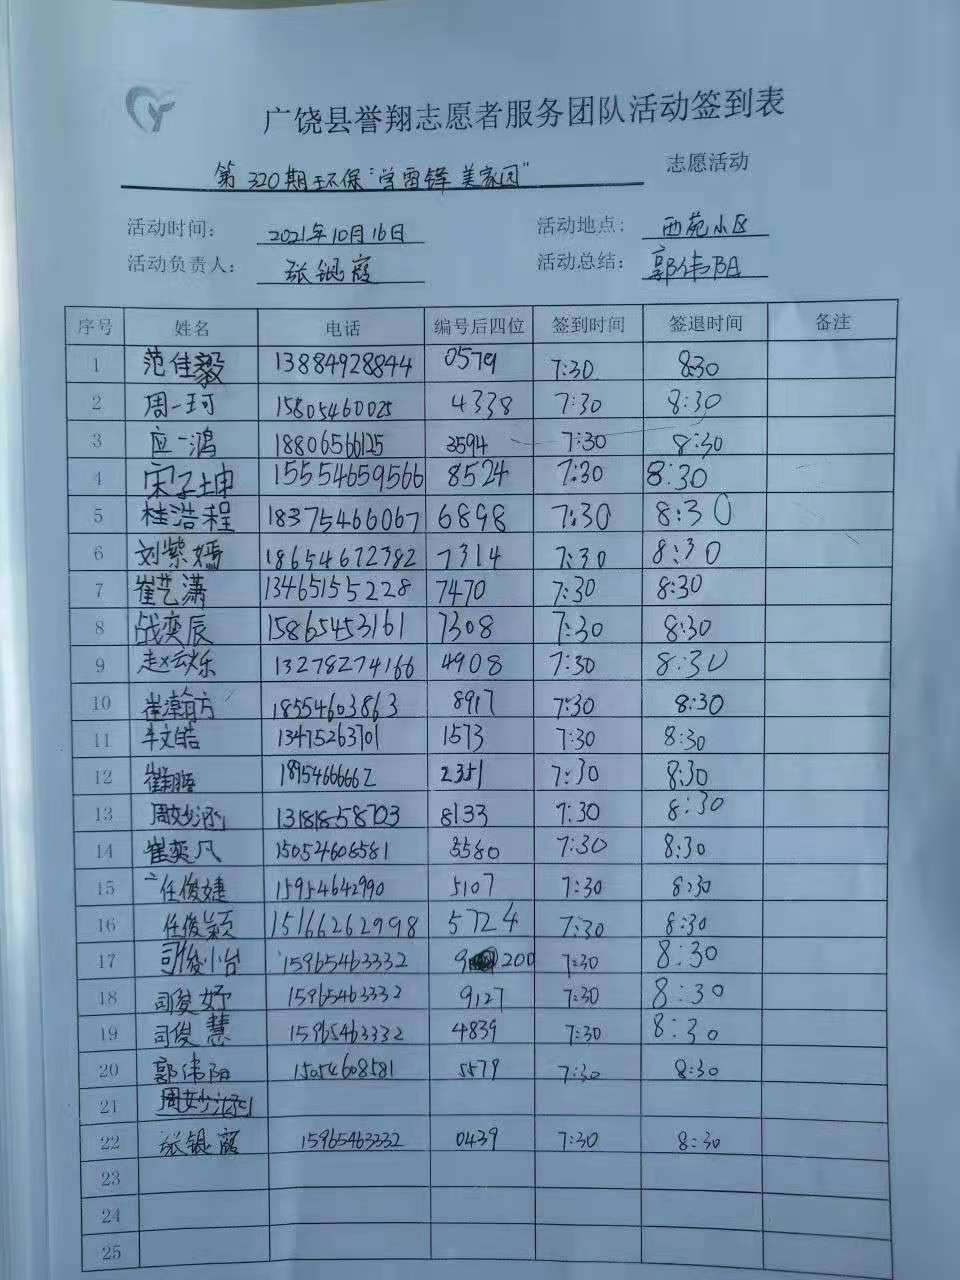 广饶县誉翔志愿者服务团队活动签到表
第320期环保“学雷锋 美家园” 志愿活动
活动时间: 2021年10月16日 活动地点: 西苑小区
活动负责人: 张银霞 活动总结: 郭伟阳
序号 姓名 电话 编号后四位 签到时间 签退时间 备注
1 范佳毅 13884928844 0579 7:30 8:30
2 周一珂 15805460025 4338 7:30 8:30
3 应一鸿 18806566125 3594 7:30 8:30
4 宋子坤 15554659566 8524 7:30 8:30
5 桂浩程 18375466067 6898 7:30 8:30
6 刘紫嫣 18654672382 7314 7:30 8:30
7 崔艺潇 13465155228 7470 7:30 8:30
8 战奕辰 15865453161 7308 7:30 8:30
9 赵云烁 13278274166 4908 7:30 8:30
10 崔瀚方 18554603863 8917 7:30 8:30
11 牛文皓 13475263701 1573 7:30 8:30
12 崔翔 18954666662 2351 7:30 8:30
13 周妙涵 13181858703 8133 7:30 8:30
14 崔奕凡 15054608581 5580 7:30 8:30
15 任俊婕 15954642990 5107 7:30 8:30
16 任俊颖 15166262998 5724 7:30 8:30
17 司俊小台 15965463332 9200 7:30 8:30
18 司俊妤 15965463332 9127 7:30 8:30
19 司俊慧 15965463332 4839 7:30 8:30
20 郭伟阳 15054608581 5579 7:30 8:30
21 周妙涵
22 张银霞 15965463332 0439 7:30 8:30
23
24
25